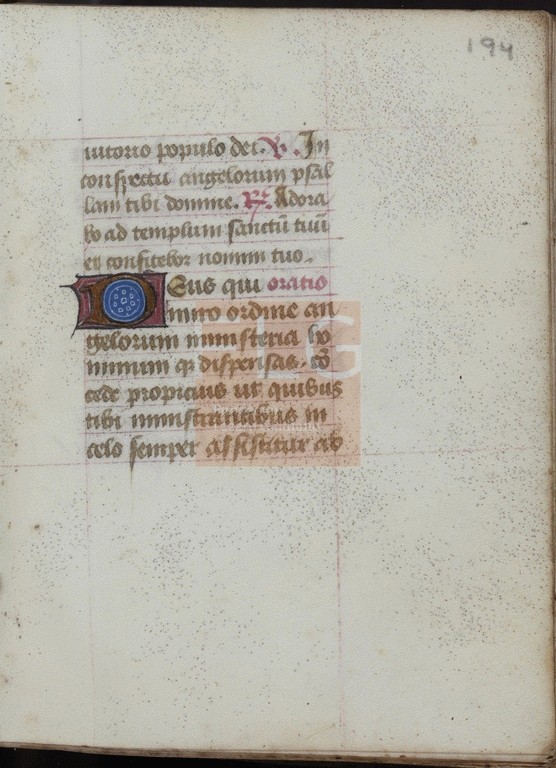 194
iutorio populo dei. V. In
conspectu angelorum psal
lam tibi domine. R. Adora
bo ad templum sanctū tuū
et confitebor nomini tuo.
Deus qui oratio
miro ordine an
gelorum ministeria ho
minum q3 dispensas. cō
cede propicius ut quibus
tibi ministrantibus in
celo semper assistitur ab